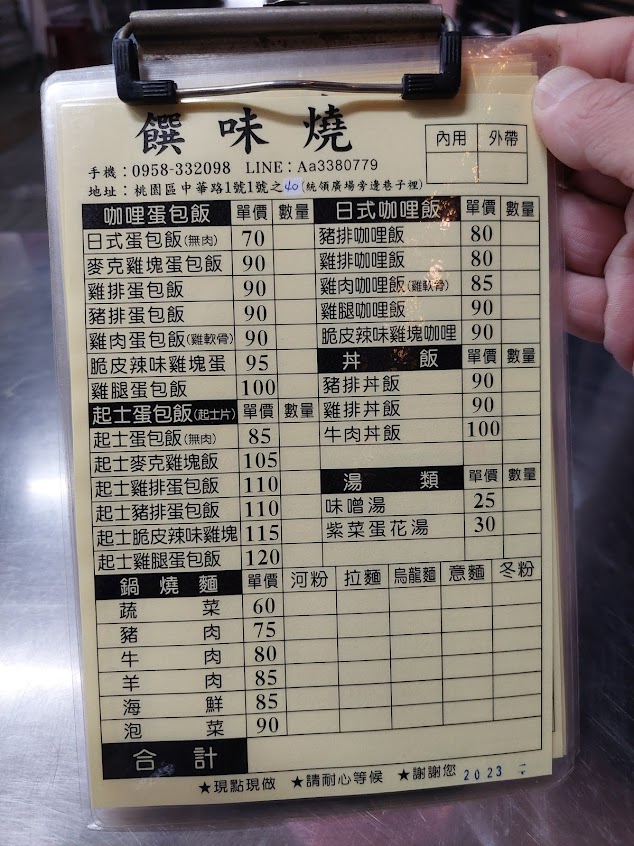 饌味燒
內用 外帶
手機：0958-332098 LINE：Aa3380779
地址：桃園區中華路1號1號之40(統領廣場旁邊巷子裡)
咖哩蛋包飯 單價 數量
日式蛋包飯(無肉) 70
麥克雞塊蛋包飯 90
雞排蛋包飯 90
豬排蛋包飯 90
雞肉蛋包飯(雞軟骨) 90
脆皮辣味雞塊蛋 95
雞腿蛋包飯 100
起士蛋包飯(起士片) 單價 數量
起士蛋包飯(無肉) 85
起士麥克雞塊飯 105
起士雞排蛋包飯 110
起士豬排蛋包飯 110
起士脆皮辣味雞塊 115
起士雞腿蛋包飯 120
日式咖哩飯 單價 數量
豬排咖哩飯 80
雞排咖哩飯 80
雞肉咖哩飯(雞軟骨) 85
雞腿咖哩飯 90
脆皮辣味雞塊咖哩 90
丼飯 單價 數量
豬排丼飯 90
雞排丼飯 90
牛肉丼飯 100
湯類 單價 數量
味噌湯 25
紫菜蛋花湯 30
鍋燒麵 單價 河粉 拉麵 烏龍麵 意麵 冬粉
蔬菜 60
豬肉 75
牛肉 80
羊肉 85
海鮮 85
泡菜 90
合計
★現點現做 ★請耐心等候 ★謝謝您 2023